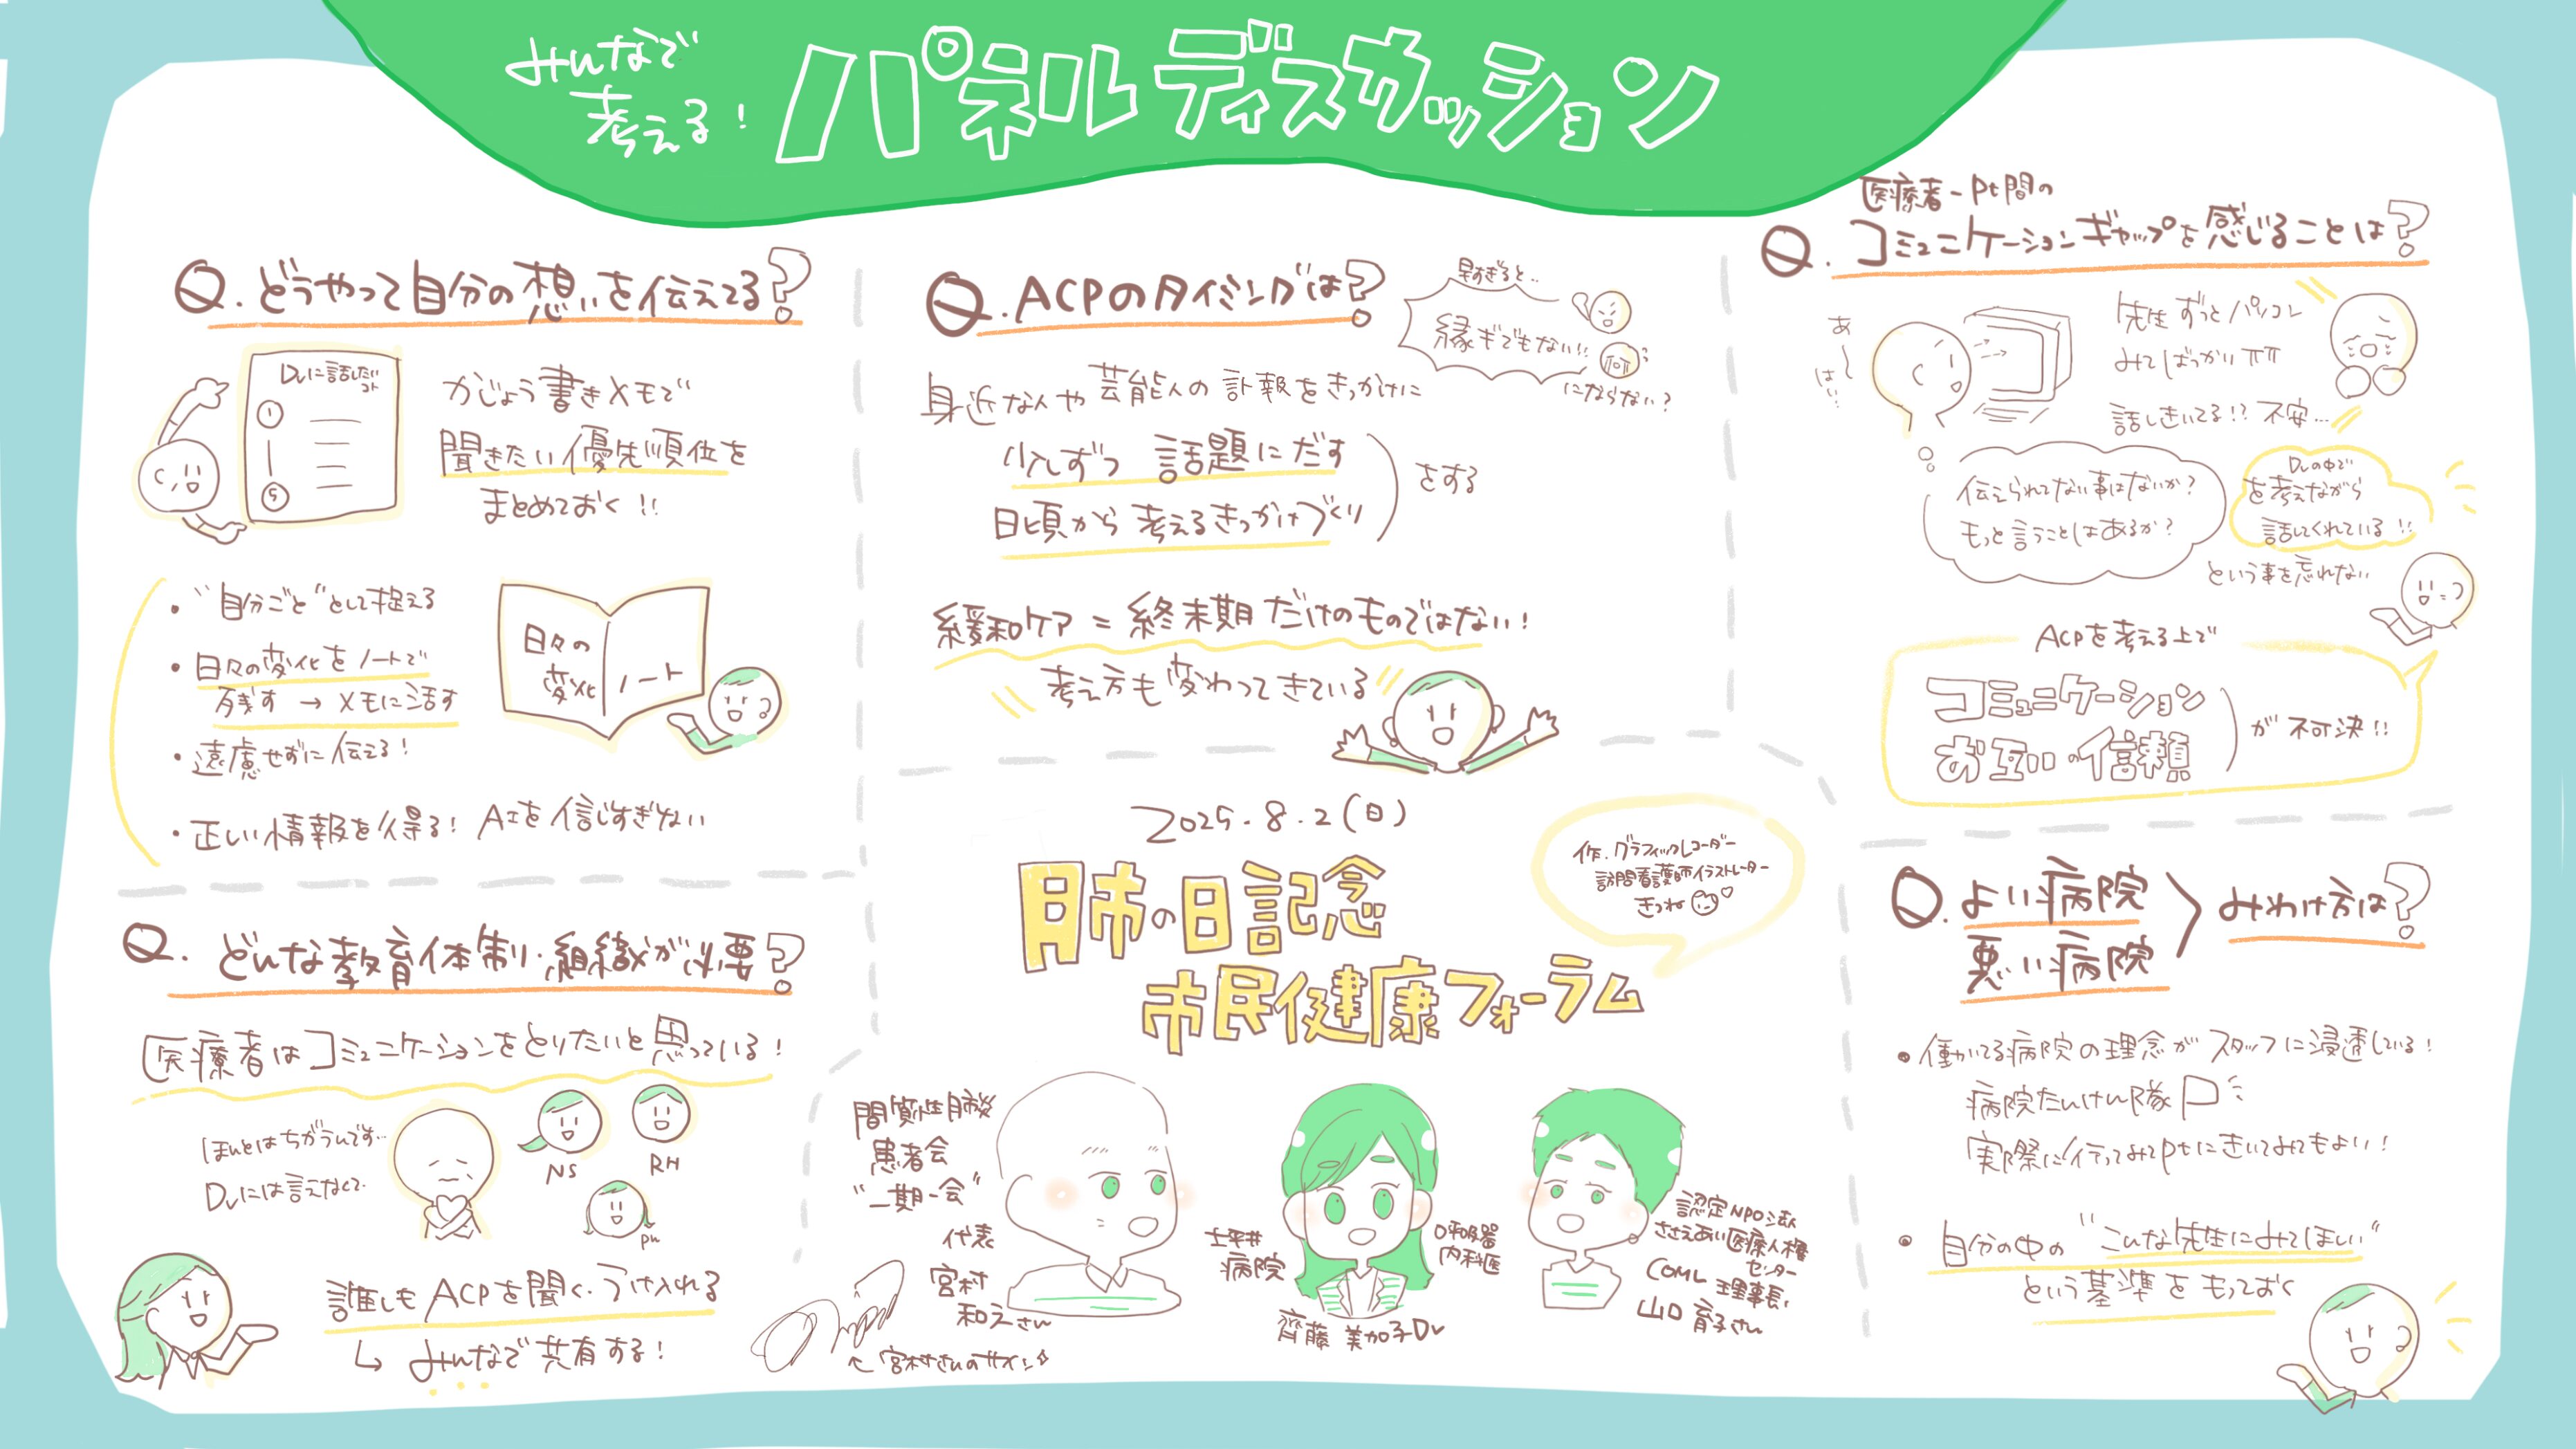 みんなで
考える！
パネルディスカッション
Q. どうやって自分の想いを伝えてる？
Drに話したいコト
①
⑤
かじょう書きメモで
聞きたい優先順位を
まとめておく!!
・"自分ごと"として捉える
・日々の変化をノートで
残す → メモに活す
・遠慮せずに伝える！
・正しい情報を得る！ AIを信じすぎない
日々の
変化
ノート
Q. どんな教育体制・組織が必要？
医療者はコミュニケーションをとりたいと思っている！
ほんとはちがうんです…
Drには言えなくて…
NS
RH
PH
誰しもACPを聞く、うけ入れる
↳ みんなで共有する！
Q. ACPのタイミングは？
早すぎると…
縁ギでもない!!
にならない？
身近な人や芸能人の訃報をきっかけに
少しずつ 話題にだす
日頃から 考えるきっかけづくり
をする
緩和ケア = 終末期だけのものではない！
考え方も変わってきている
2025.8.2(日)
肺の日記念
市民健康フォーラム
作. グラフィックレコーダー
訪問看護師イラストレーター
きつね
間質性肺炎
患者会
"一期一会"
代表
宮村
和之さん
← 宮村さんのサイン
土平井
病院
呼吸器
内科医
齊藤 美加子Dr
認定NPO法人
ささえあい医療人権
センター
COML 理事長
山口 育子さん
医療者-Pt間の
Q. コミュニケーションギャップを感じることは？
あ〜
はい…
先生ずっとパソコン
みてばっかりTT
話しきいてる!? 不安…
伝えられてない事はないか？
もっと言うことはあるか？
Drの中で
を考えながら
話してくれている!!
という事を忘れない
ACPを考える上で
コミュニケーション
お互いの信頼
が不可決!!
Q. よい病院
悪い病院
みわけ方は？
・働いてる病院の理念がスタッフに浸透している！
病院たんけん隊
実際に行ってみてPtにきいてみてもよい！
・自分の中の "こんな先生にみてほしい"
という基準をもっておく